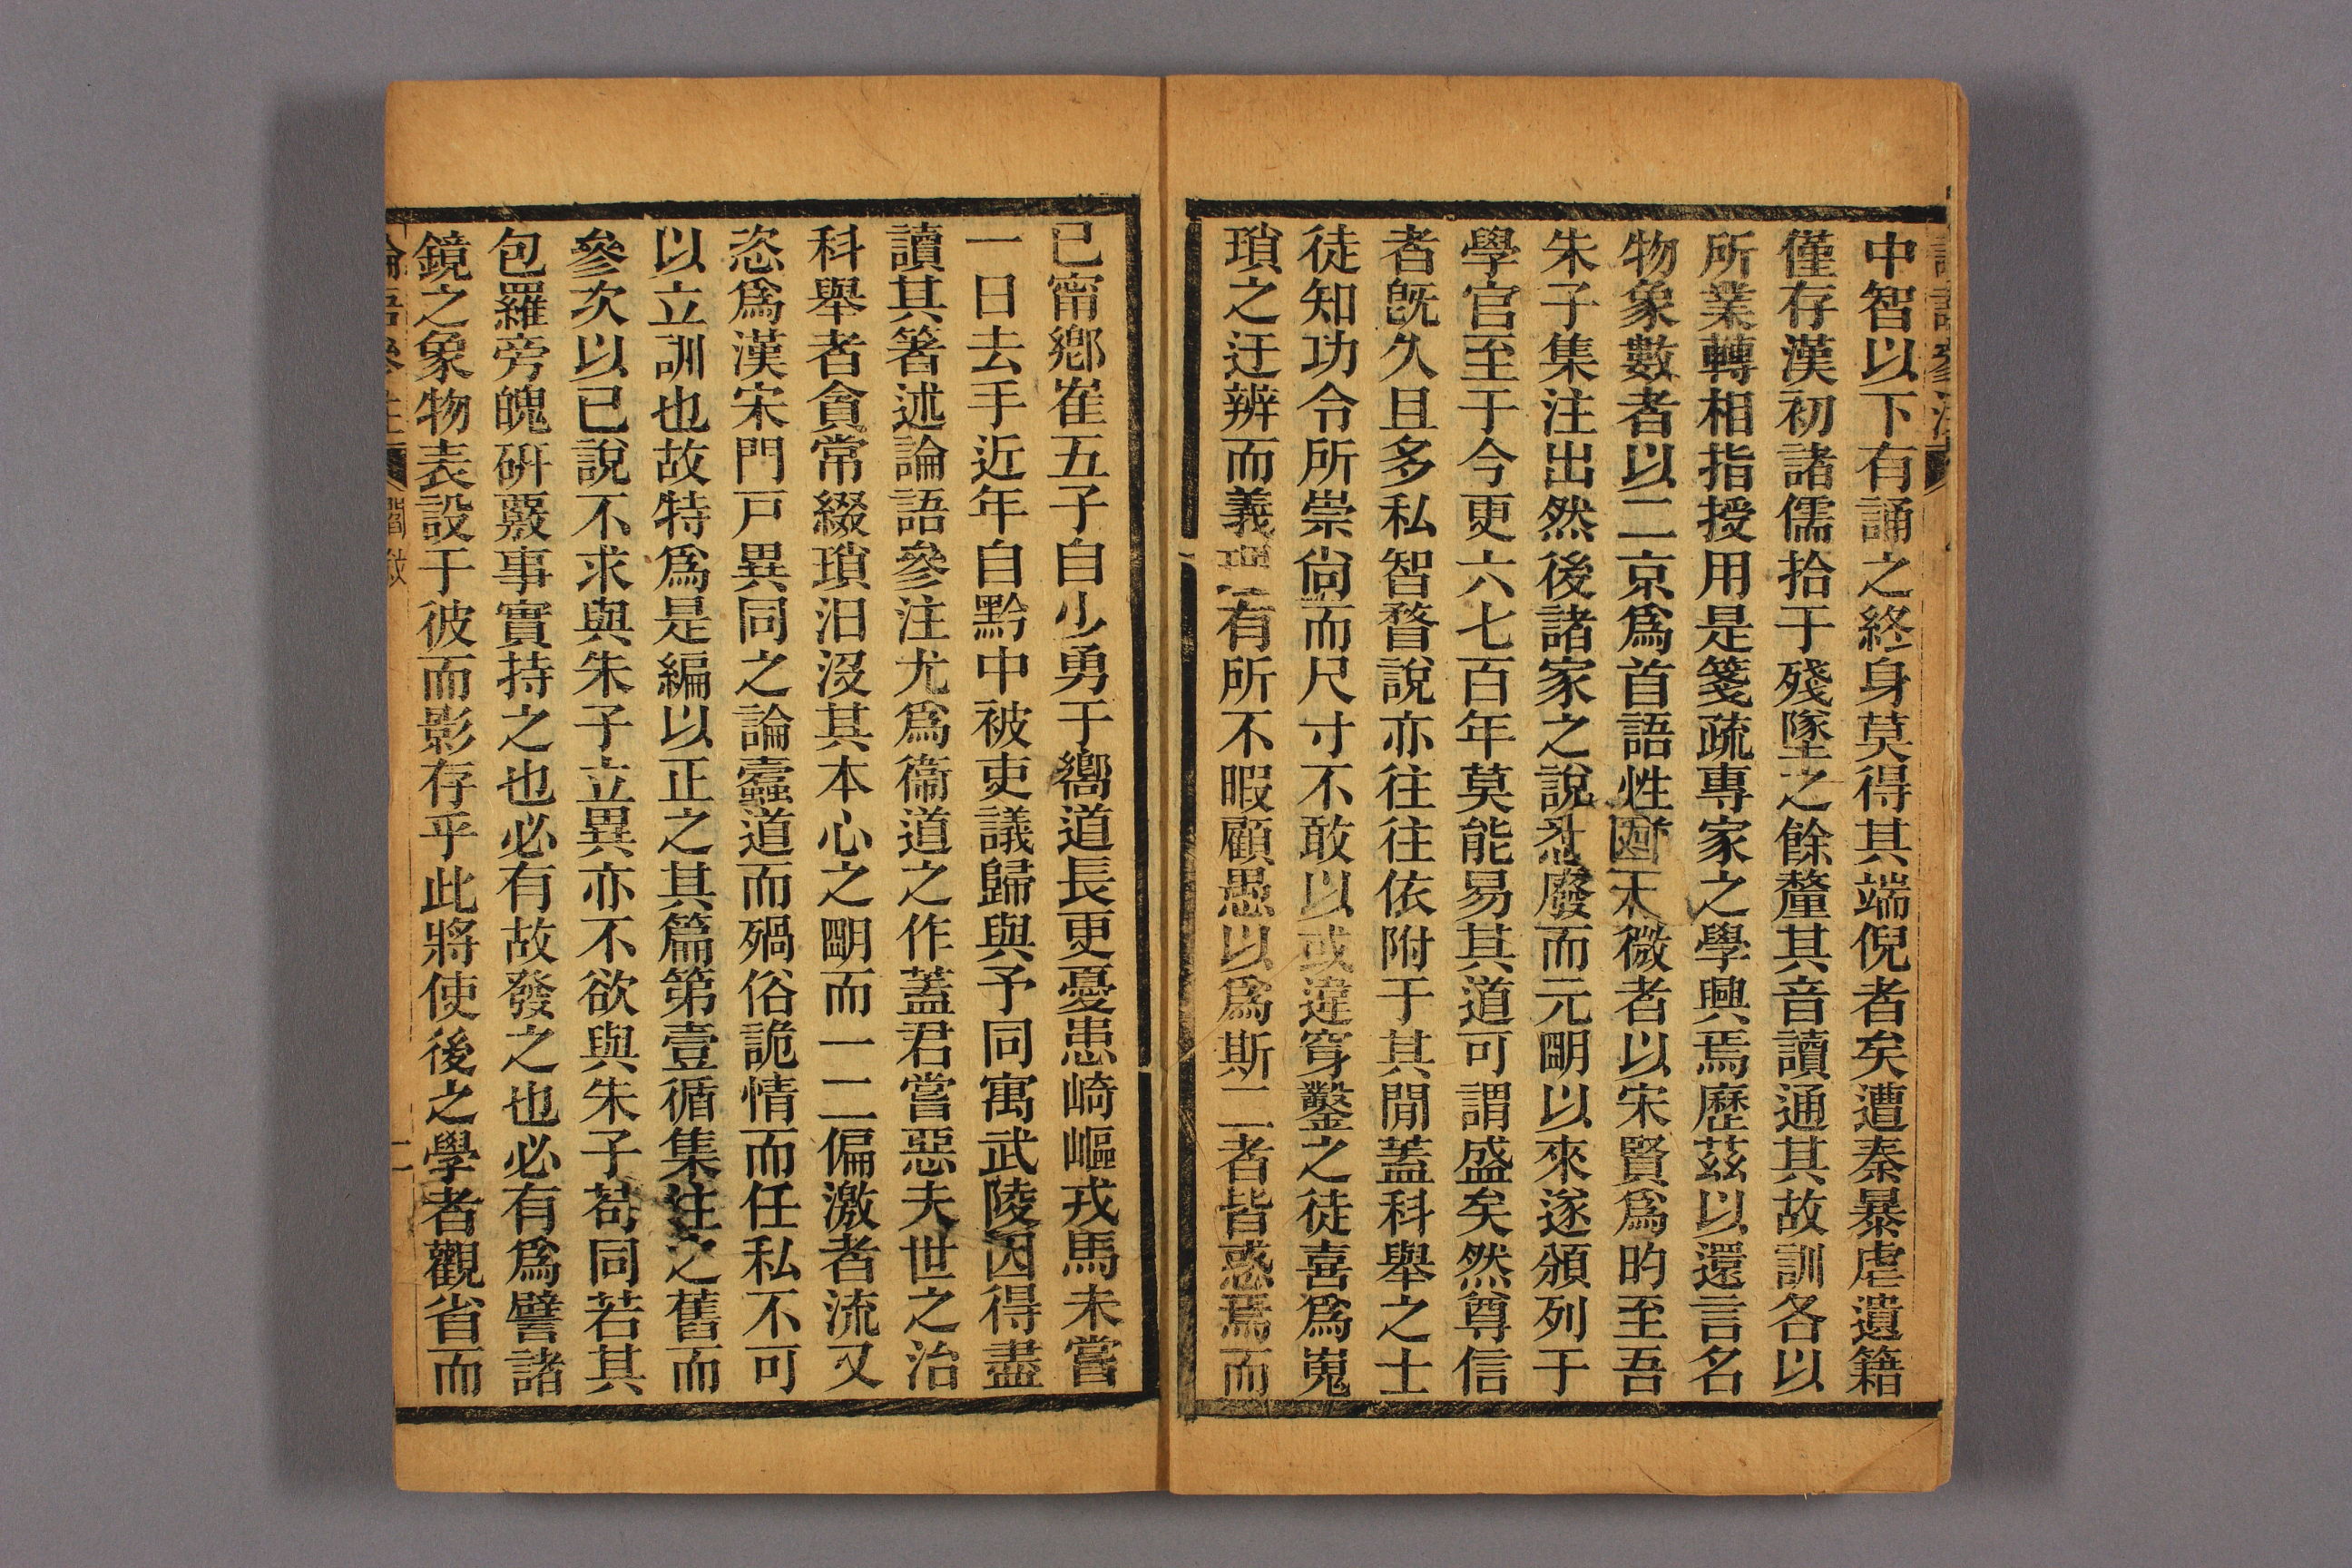 中智以下有誦之終身莫得其端倪者矣遭秦暴虐遺籍
僅存漢初諸儒拾于殘墜之餘釐其音讀通其故訓各以
所業轉相指授用是箋疏專家之學興焉歷茲以還言名
物象數者以二京爲首語性微者以宋賢爲昀至吾
朱子集注出然後諸家之說悉廢而元朙以來遂頒列于
學官至于今更六七百年莫能易其道可謂盛矣然尊信
者旣久且多私智瞀說亦往往依附于其閒蓋科舉之士
徒知功令所崇尙而尺寸不敢以或違穿鑿之徒喜爲嵬
瑣之迂辨而義有所不暇顧愚以爲斯二者皆惑焉而
已甯鄉崔五子自少勇于嚮道長更憂患崎嶇戎馬未嘗
一日去手近年自黔中被吏議歸與予同寓武陵因得盡
讀其箸述論語參注尤爲衞道之作蓋君嘗惡夫世之治
科舉者貪常綴瑣汨沒其本心之朙而一二偏激者流又
恣爲漢宋門戸異同之論蠹道而殢俗詭情而任私不可
以立訓也故特爲是編以正之其篇第壹循集注之舊而
參次以己說不求與朱子立異亦不欲與朱子苟同若其
包羅旁魄硏覈事實持之也必有故發之也必有爲譬諸
鏡之象物表設于彼而影存乎此將使後之學者觀省而